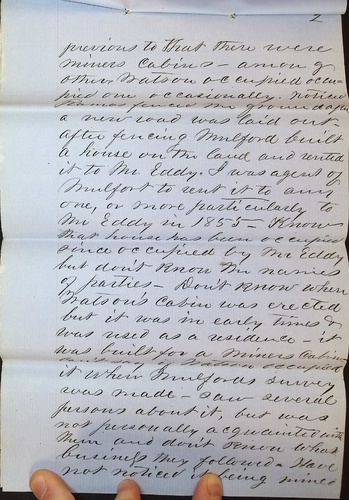 2
previous to that there were
miners cabins - among
other Watson occupied occu-
pied one occasionally. noticed
fenced the ground after
a new road was laid out
after fencing Mulford built
a house on the land and rented
it to Mr. Eddy. I was agent of
Mulfort to rent it to any
one, or more particularly to
Mr Eddy in 1855 - Know
that house has been occupied
since occupied by Mr Eddy
but don't know the names
of parties - Don't know when
Watson's cabin was erected
but it was in early times &
was used as a residence - it
was built for a miners cabin
Watson occupied
it when Mulfords survey
was made - saw several
persons about it, but was
not personally acquainted with
them and don't know what
business they followed - Have
not noticed it being mined